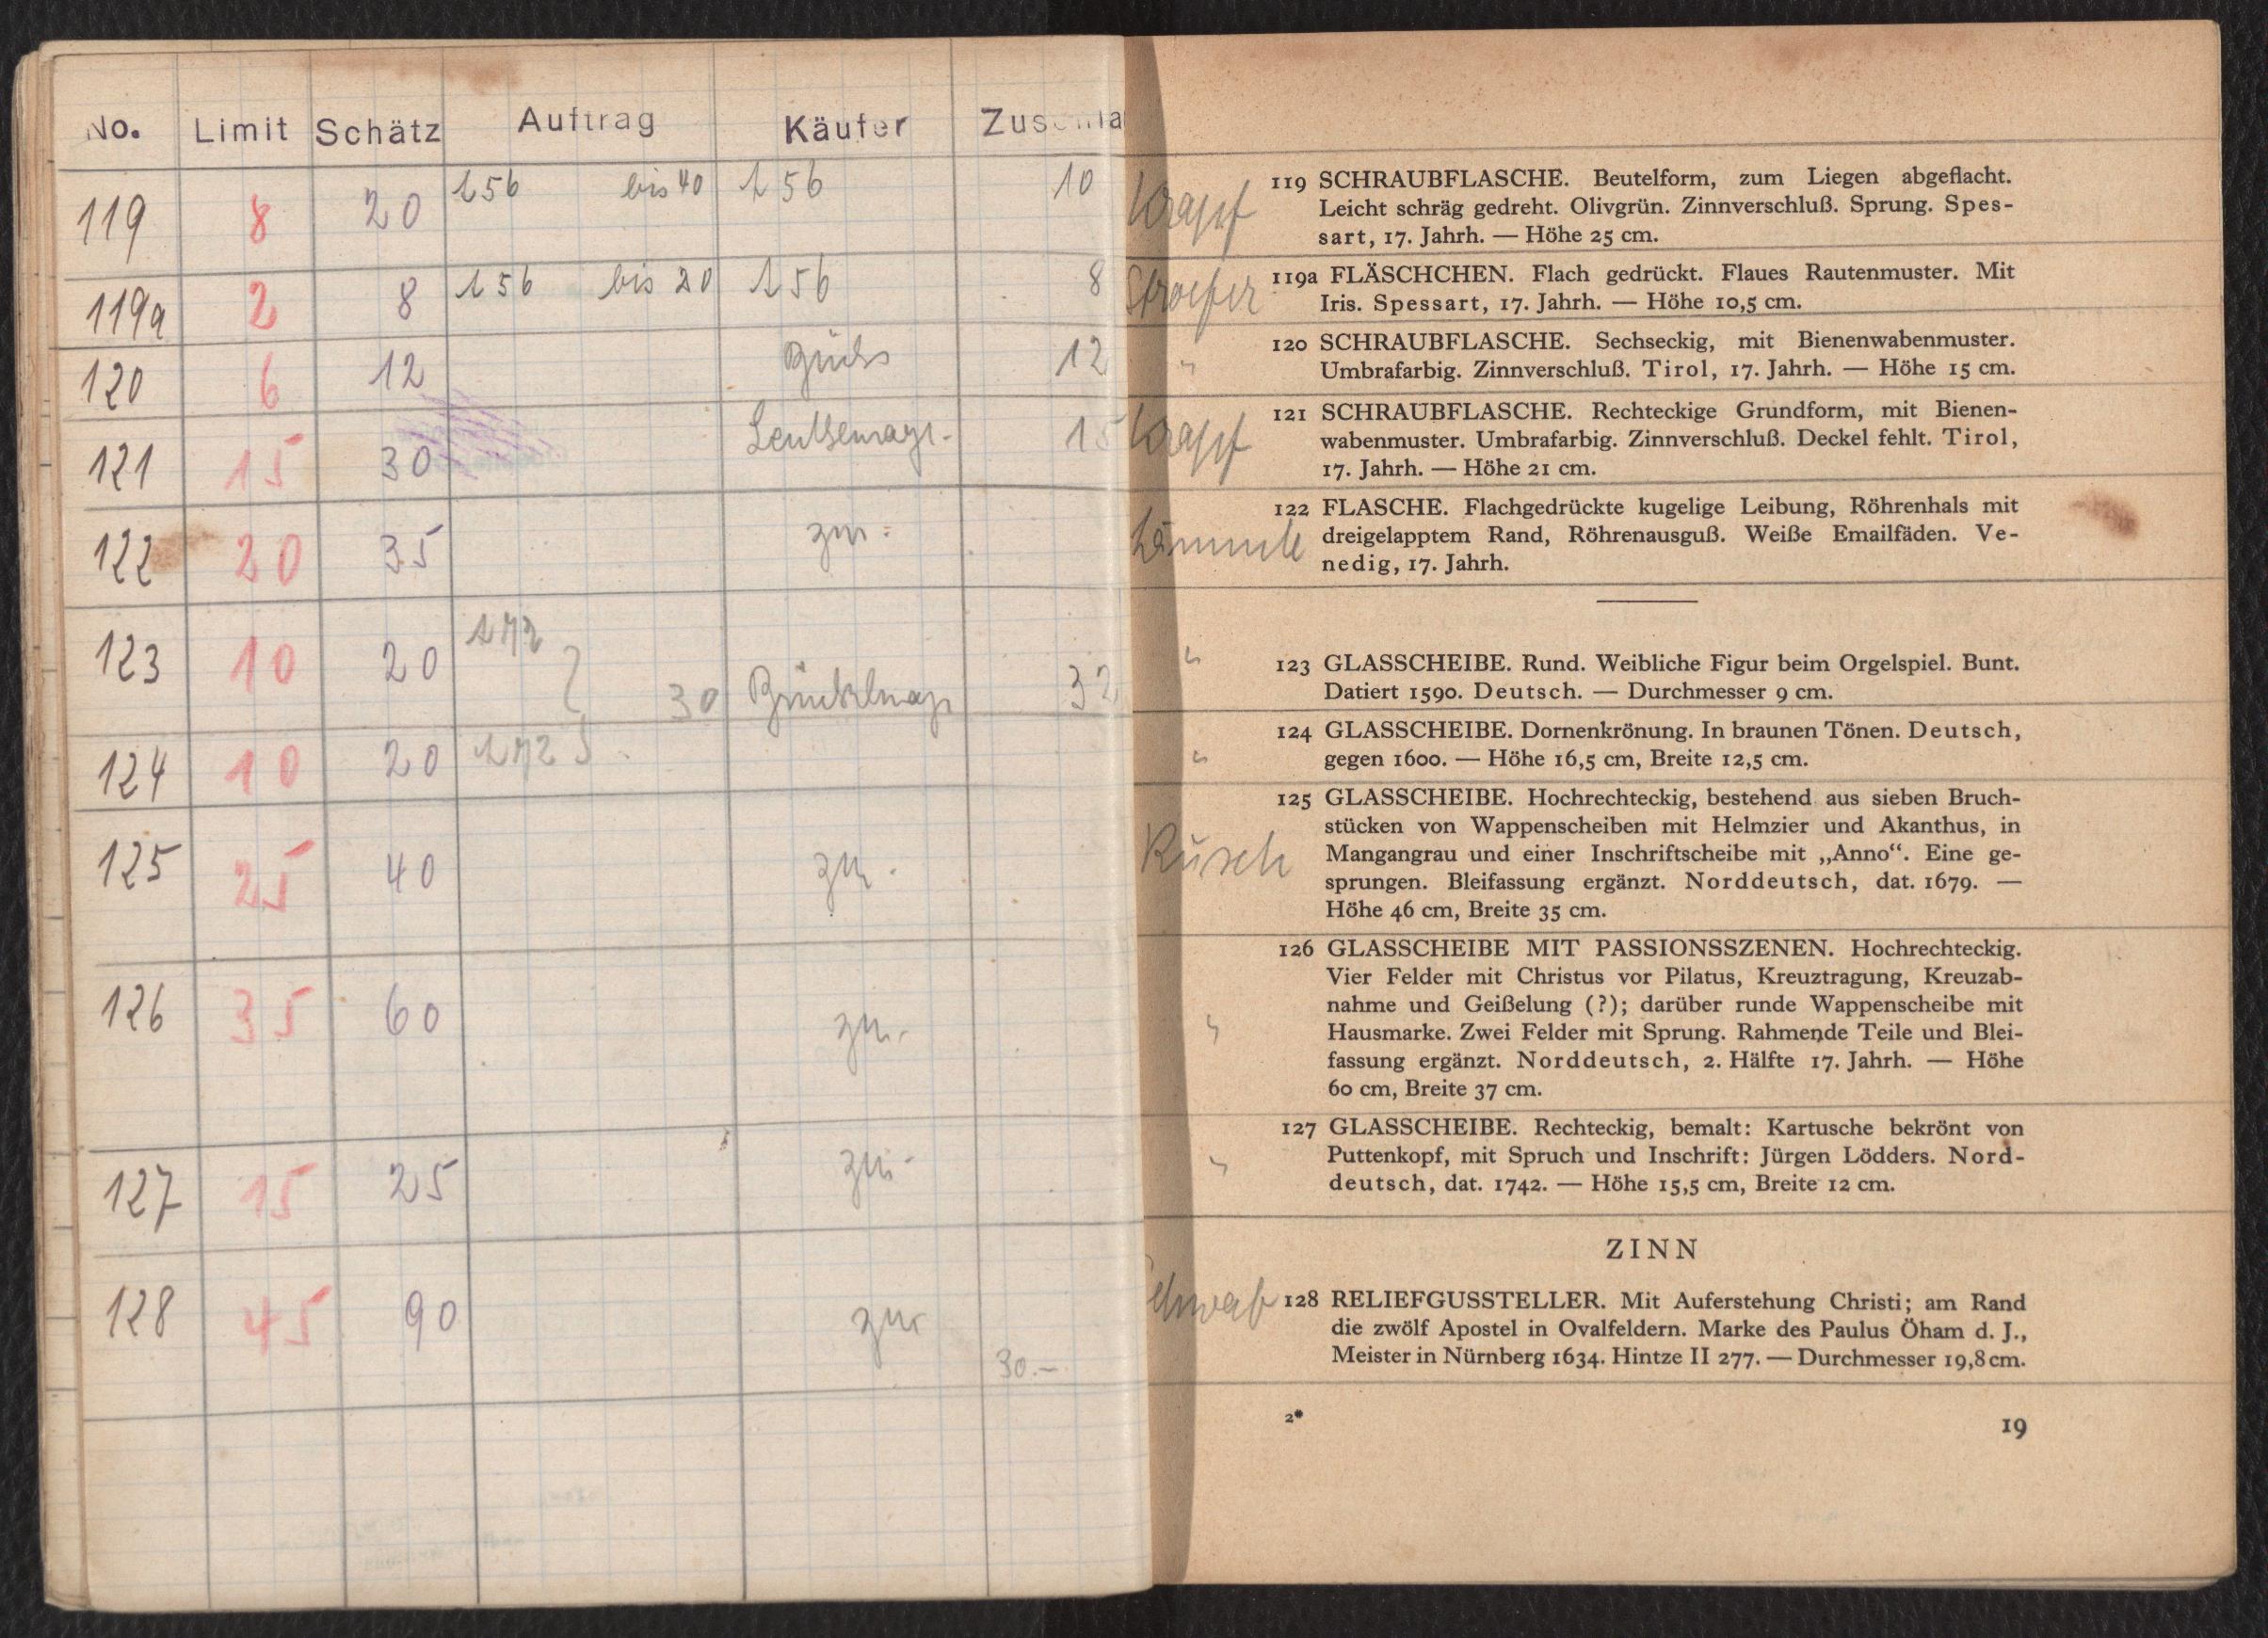 No. Limit Schätz Auftrag Käufer
119 8 20 156 bis 40 156 10
119a 2 8 156 bis 20 156 8
120 6 12 12
121 15 30 15
122 20 35
123 10 20 172
30 32
124 10 20 172
125 25 40
126 35 60
127 15 25
128 45 90 zur
30.–
119 SCHRAUBFLASCHE. Beutelform, zum Liegen abgeflacht.
Leicht schräg gedreht. Olivgrün. Zinnverschluß. Sprung. Spes-
sart, 17. Jahrh. — Höhe 25 cm.
Stroefer
119a FLÄSCHCHEN. Flach gedrückt. Flaues Rautenmuster. Mit
Iris. Spessart, 17. Jahrh. — Höhe 10,5 cm.
120 SCHRAUBFLASCHE. Sechseckig, mit Bienenwabenmuster.
Umbrafarbig. Zinnverschluß. Tirol, 17. Jahrh. — Höhe 15 cm.
121 SCHRAUBFLASCHE. Rechteckige Grundform, mit Bienen-
wabenmuster. Umbrafarbig. Zinnverschluß. Deckel fehlt. Tirol,
17. Jahrh. — Höhe 21 cm.
122 FLASCHE. Flachgedrückte kugelige Leibung, Röhrenhals mit
Lämmle
dreigelapptem Rand, Röhrenausguß. Weiße Emailfäden. Ve-
nedig, 17. Jahrh.
123 GLASSCHEIBE. Rund. Weibliche Figur beim Orgelspiel. Bunt.
Datiert 1590. Deutsch. — Durchmesser 9 cm.
124 GLASSCHEIBE. Dornenkrönung. In braunen Tönen. Deutsch,
gegen 1600. — Höhe 16,5 cm, Breite 12,5 cm.
125 GLASSCHEIBE. Hochrechteckig, bestehend aus sieben Bruch-
stücken von Wappenscheiben mit Helmzier und Akanthus, in
Rüsch
Mangangrau und einer Inschriftscheibe mit „Anno“. Eine ge-
sprungen. Bleifassung ergänzt. Norddeutsch, dat. 1679. —
Höhe 46 cm, Breite 35 cm.
126 GLASSCHEIBE MIT PASSIONSSZENEN. Hochrechteckig.
Vier Felder mit Christus vor Pilatus, Kreuztragung, Kreuzab-
nahme und Geißelung (?); darüber runde Wappenscheibe mit
Hausmarke. Zwei Felder mit Sprung. Rahmende Teile und Blei-
fassung ergänzt. Norddeutsch, 2. Hälfte 17. Jahrh. — Höhe
60 cm, Breite 37 cm.
127 GLASSCHEIBE. Rechteckig, bemalt: Kartusche bekrönt von
Puttenkopf, mit Spruch und Inschrift: Jürgen Lödders. Nord-
deutsch, dat. 1742. — Höhe 15,5 cm, Breite 12 cm.
ZINN
128 RELIEFGUSSTELLER. Mit Auferstehung Christi; am Rand
die zwölf Apostel in Ovalfeldern. Marke des Paulus Öham d. J.,
Meister in Nürnberg 1634. Hintze II 277. — Durchmesser 19,8 cm.
2*
19